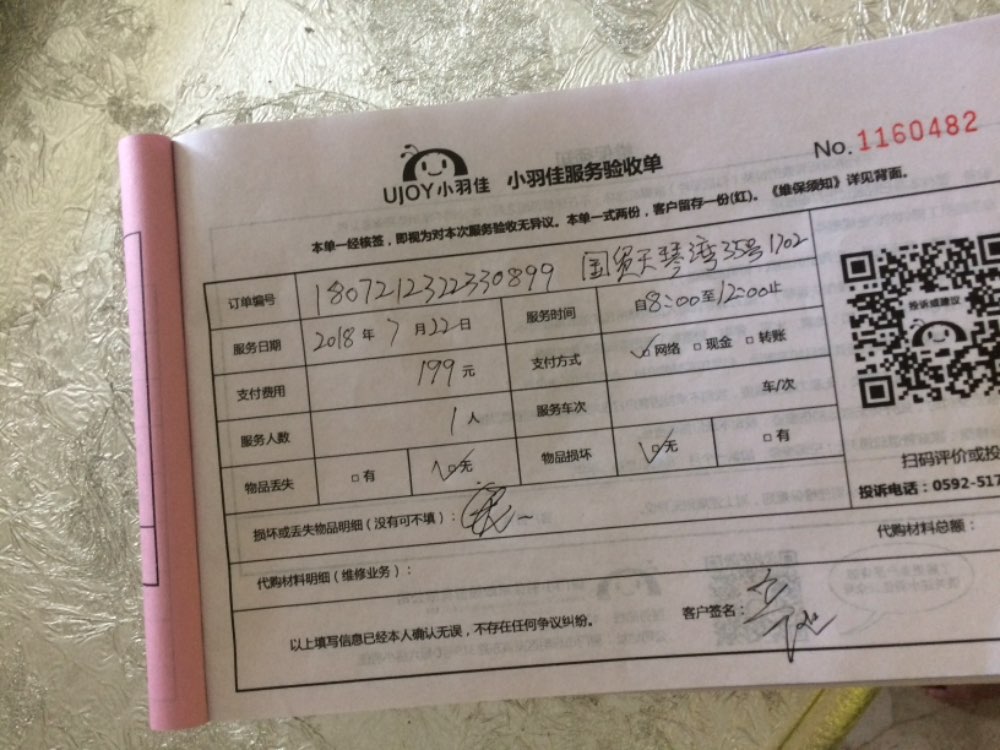 UJOY小羽佳 小羽佳服务验收单
No.1160482
本单一经核签，即视为对本次服务验收无异议。本单一式两份，客户留存一份(红)。《维保须知》详见背面。
订单编号 1807212322330899 国贸天琴湾35号1702
服务日期 2018年7月22日 服务时间 自8:00至12:00止
支付费用 199元 支付方式 ☑网络 □现金 □转账
服务人数 1人 服务车次 车/次
物品丢失 □有 ☑无 物品损坏 ☑无 □有
投诉或建议
扫码评价或投
投诉电话：0592-517
损坏或丢失物品明细（没有可不填）：
代购材料明细（维修业务）： 代购材料总额：
以上填写信息已经本人确认无误，不存在任何争议纠纷。 客户签名：